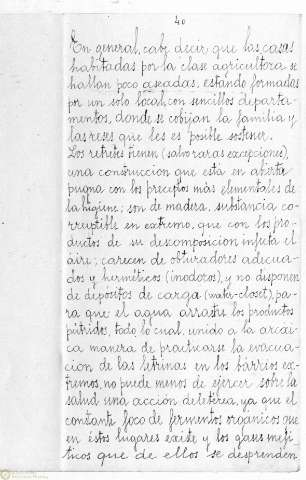 40
En general, cabe decir que las casas
habitadas por la clase agricultora se
hallan poco aseadas, estando formadas
por un solo local, con sencillos departa-
mentos, donde se cobijan la familia y
las reses que les es posible sostener.
Los retretes tienen (salvo raras excepciones),
una construccion que está en abierta
pugna con los preceptos más elementales de
la higiene; son de madera, substancia co-
rruptible en extremo, que con los pro-
ductos de su descomposición infecta el
aire; carecen de obturadores adecua-
dos y herméticos (inodoros), y no disponen
de depósitos de carga (water-closet), pa-
ra que el agua arrastre los productos
pútridos, todo lo cual, unido a la arcai-
ca manera de practicarse la evacua-
ción de las letrinas en los barrios ex-
tremos, no puede menos de ejercer sobre la
salud una acción deletérea, ya que el
constante foco de fermentos orgánicos que
en éstos lugares existe y los gases mefí-
ticos que de ellos se desprenden